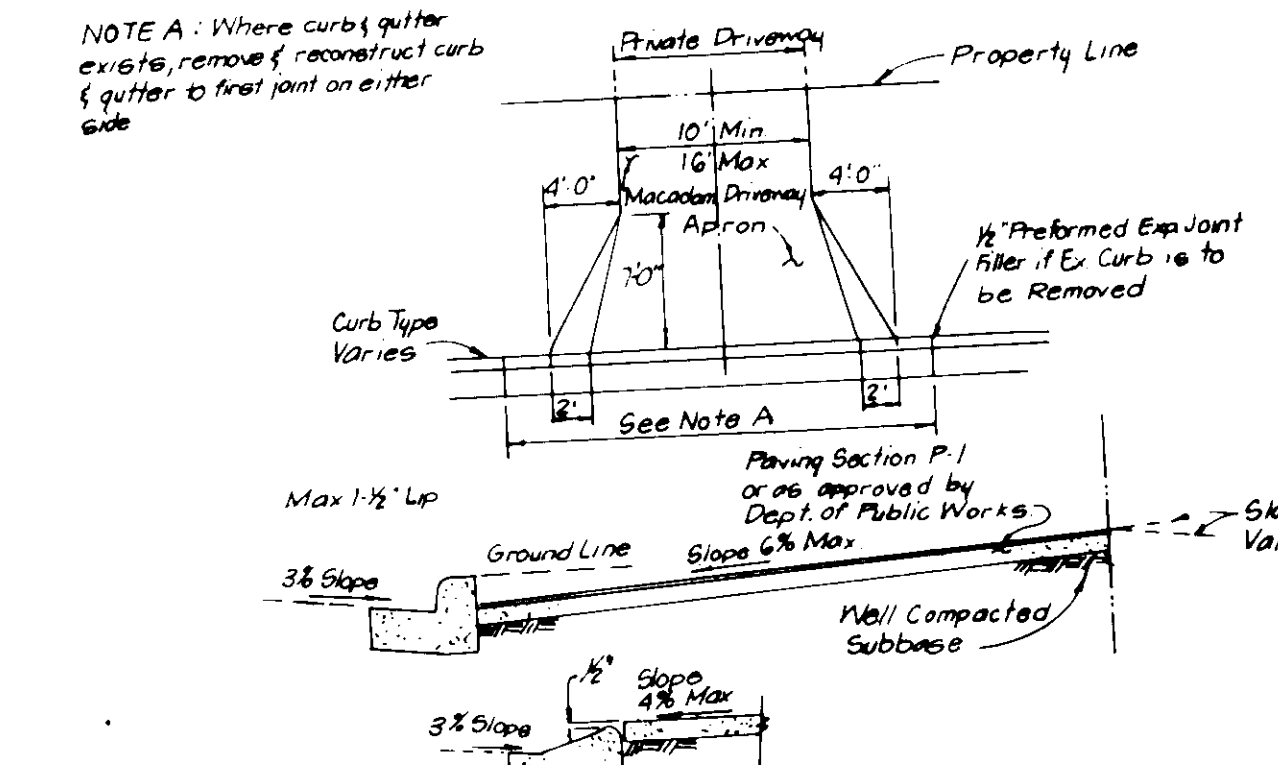 NOTE A : Where curb & gutter
exists, remove & reconstruct curb
& gutter to first joint on either
side
Private Driveway
Property Line
10' Min
16' Max
4'-0"
4'-0"
Macadam Driveway
Apron
7'-0"
1/2" Preformed Exp Joint
Filler if Ex. Curb is to
be Removed
Curb Type
Varies
2'
2'
See Note A
Paving Section P-1
or as approved by
Dept. of Public Works
Max 1-1/2" Lip
Ground Line
Slope 6% Max
3% Slope
Well Compacted
Subbase
1/2"
Slope
4% Max
3% Slope